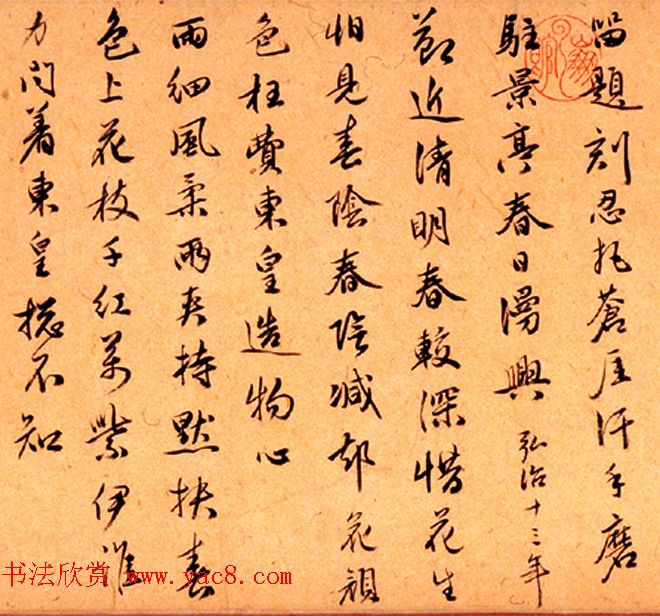 留题刻忍扫苍厓汗手磨
駐景亭春日漫興 弘治十三年
莭近清明春較深惜花生
怕見春陰春陰減却花顏
色枉費東皇造物心
雨細風柔兩夾持默扶春
色上花枝千紅萬紫伊誰
力问着東皇揔不知
书法欣赏 www.yac8.com